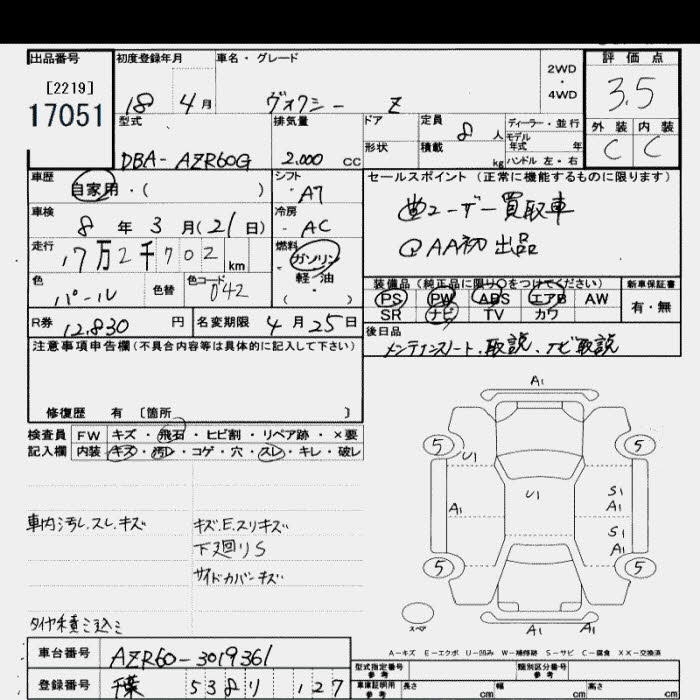 出品番号 初度登録年月 車名・グレード 2WD・4WD 評価点
[2219]
17051
18年4月 ヴォクシー Z 3.5
型式 排気量 ドア 定員 8人 ディーラー・並行 外装 内装
モデル年式 年
DBA-AZR60G 2.000 CC 形状 積載 kg ハンドル 左・右 C C
車歴 シフト セールスポイント(正常に機能するものに限ります)
自家用・( ) A7
ユーザー買取車
車検 冷房
8年3月(21日) AC
AA初出品
走行 17万2千702km 燃料 ガソリン
軽・油
( )
装備品(純正品に限り○をつけてください) 新車保証書
色 パール 色替 色コード 042
PS PW ABS エアB AW 有・無
SR ナビ TV カワ
R券 12.830円 名変期限 4月25日
後日品
メンテナンスノート、取説、ナビ取説
注意事項申告欄(不具合内容等は具体的に記入して下さい)
修復歴 有 [箇所 ]
検査員 FW キズ・飛石・ヒビ割・リペア跡・×要
記入欄 内装 キズ・汚れ・コゲ・穴・スレ・キレ・破レ
A1
5 5
U1
U1
A1
S1
A1
S1
A1
5 5
A1 A1
スペア
車内汚し、スレ、キズ
キズ、E、スリキズ
下廻りS
サイドカバーキズ
タイヤ積ミ込ミ
A-キズ E-エクボ U-凹み W-補修跡 S-サビ C-腐食 XX-交換済
車台番号 AZR60-3019361
型式指定番号 類別区分番号
登録番号 千葉 538 り 127
車庫証明用参考 長さ cm 幅 cm 高さ cm